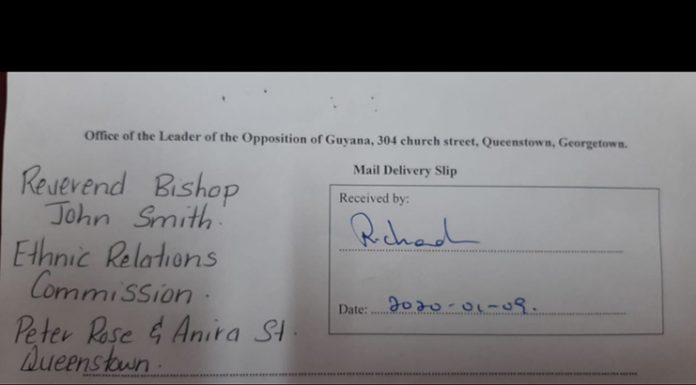 Office of the Leader of the Opposition of Guyana, 304 church street, Queenstown, Georgetown.
Mail Delivery Slip
Reverend Bishop
John Smith.
Ethnic Relations
Commission.
Peter Rose & Anira St.
Queenstown.
Received by:
Richard
Date: 2020-01-09.